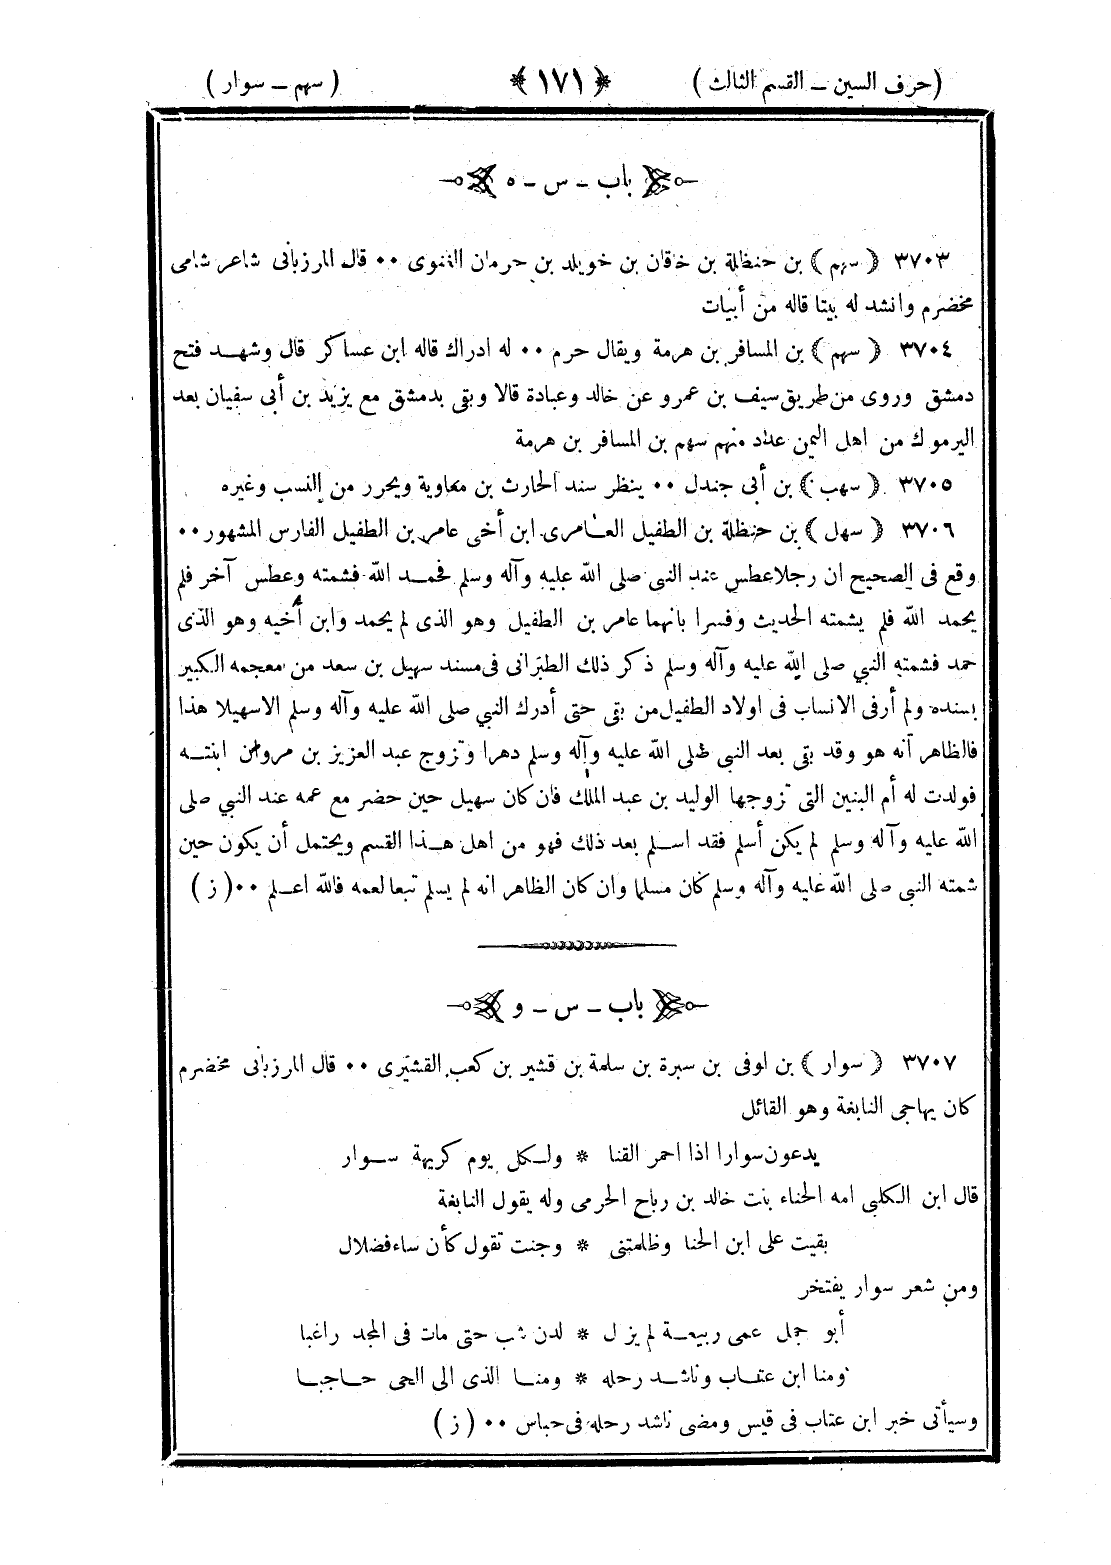 (حرف السين ــ القسم الثالث) ﴿١٧١﴾ (سهم ــ سوار)
باب ـ س ـ ه
٣٧٠٣ ﴿سهم﴾ بن حنظلة بن خاقان بن خويلد بن حرمان الغنوى ٠٠ قال المرزبانى شاعر شامى
مخضرم وانشد له بيتا قاله من أبيات
٣٧٠٤ ﴿سهم﴾ بن المسافر بن هرمة ويقال حرم ٠٠ له ادراك قاله ابن عساكر قال وشهد فتح
دمشق وروى من طريق سيف بن عمرو عن خالد وعبادة قالا وبقى بدمشق مع يزيد بن أبى سفيان بعد
اليرموك من اهل اليمن عداد منهم سهم بن المسافر بن هرمة
٣٧٠٥ ﴿سهب﴾ بن أبى جندل ٠٠ ينظر سند الحارث بن معاوية ويحرر من النسب وغيره
٣٧٠٦ ﴿سهل﴾ بن حنظلة بن الطفيل العامرى ابن أخى عامر بن الطفيل الفارس المشهور ٠٠
وقع فى الصحيح ان رجلا عطس عند النبى صلى الله عليه وآله وسلم فحمد الله فشمته وعطس آخر فلم
يحمد الله فلم يشمته الحديث وفسرا بانهما عامر بن الطفيل وهو الذى لم يحمد وابن أخيه وهو الذى
حمد فشمته النبي صلى الله عليه وآله وسلم ذكر ذلك الطبرانى فى مسند سهيل بن سعد من معجمه الكبير
بسنده ولم أر فى الانساب فى اولاد الطفيل من بقى حتى أدرك النبي صلى الله عليه وآله وسلم الا سهيلا هذا
فالظاهر أنه هو وقد بقى بعد النبى صلى الله عليه وآله وسلم دهرا وتزوج عبد العزيز بن مروان ابنته
فولدت له أم البنين التى تزوجها الوليد بن عبد الملك فان كان سهيل حين حضر مع عمه عند النبي صلى
الله عليه وآله وسلم لم يكن أسلم فقد اسلم بعد ذلك فهو من اهل هذا القسم ويحتمل أن يكون حين
شمته النبى صلى الله عليه وآله وسلم كان مسلما وان كان الظاهر انه لم يسلم تبعا لعمه فالله اعلم ٠٠ (ز)
باب ـ س ـ و
٣٧٠٧ ﴿سوار﴾ بن اوفى بن سبرة بن سلمة بن قشير بن كعب القشيرى ٠٠ قال المرزبانى مخضرم
كان يهاجى النابغة وهو القائل
يدعون سوارا اذا احمر القنا * ولكل يوم كريهة سوار
قال ابن الكلبي امه الحناء بنت خالد بن رباح الحرمى وله يقول النابغة
بقيت على ابن الحنا وظلمتنى * وجنت تقول كأن ساء فضلال
ومن شعر سوار يفتخر
أبو جمل عمى ربيعة لم يزل * لدن شب حتى مات فى المجد راغبا
ومنا ابن عتاب وناشد رحله * ومنا الذى الى الحى حاجبا
وسيأتى خبر ابن عتاب فى قيس ومضى ناشد رحله فى حباس ٠٠ (ز)